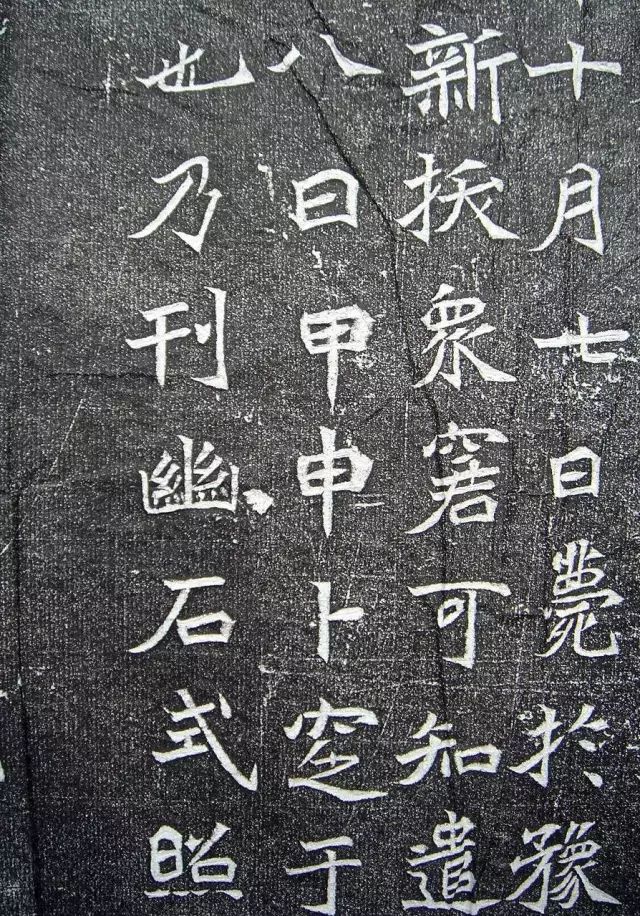 十月七日薨於豫
新拔衆窘可知遣
八日甲申卜窆于
也乃刊幽石式照